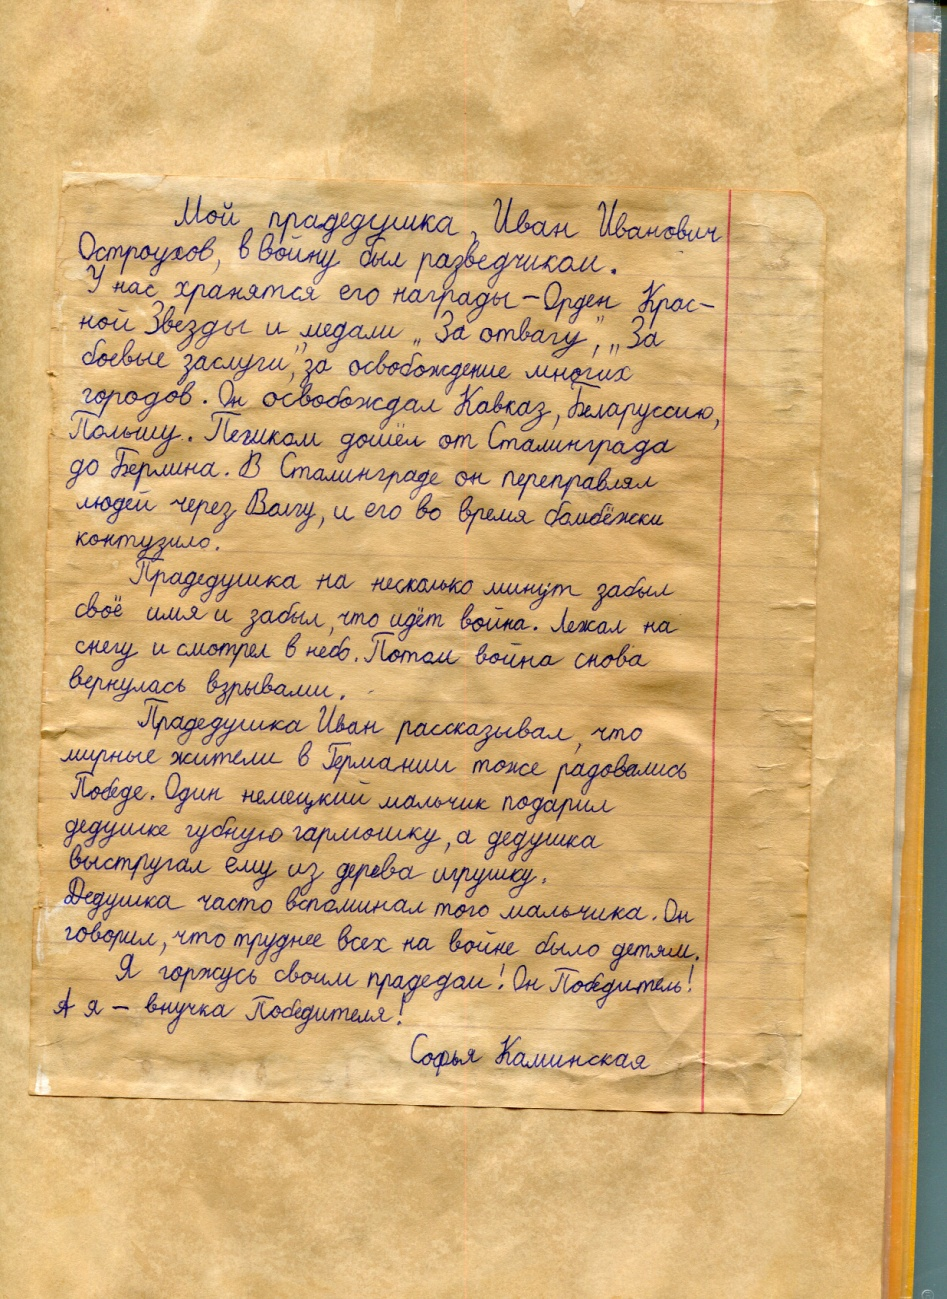 Мой прадедушка, Иван Иванович
Остроухов, в войну был разведчиком.
У нас хранятся его награды – Орден Крас-
ной Звезды и медали „За отвагу”, „За
боевые заслуги”, за освобождение многих
городов. Он освобождал Кавказ, Беларуссию,
Польшу. Пешком дошёл от Сталинграда
до Берлина. В Сталинграде он переправлял
людей через Волгу, и его во время бомбёжки
контузило.
Прадедушка на несколько минут забыл
своё имя и забыл, что идёт война. Лежал на
снегу и смотрел в небо. Потом война снова
вернулась взрывами.
Прадедушка Иван рассказывал, что
мирные жители в Германии тоже радовались
Победе. Один немецкий мальчик подарил
дедушке губную гармошку, а дедушка
выстругал ему из дерева игрушку.
Дедушка часто вспоминал того мальчика. Он
говорил, что труднее всех на войне было детям.
Я горжусь своим прадедом! Он Победитель!
А я – внучка Победителя!
Софья Каминская